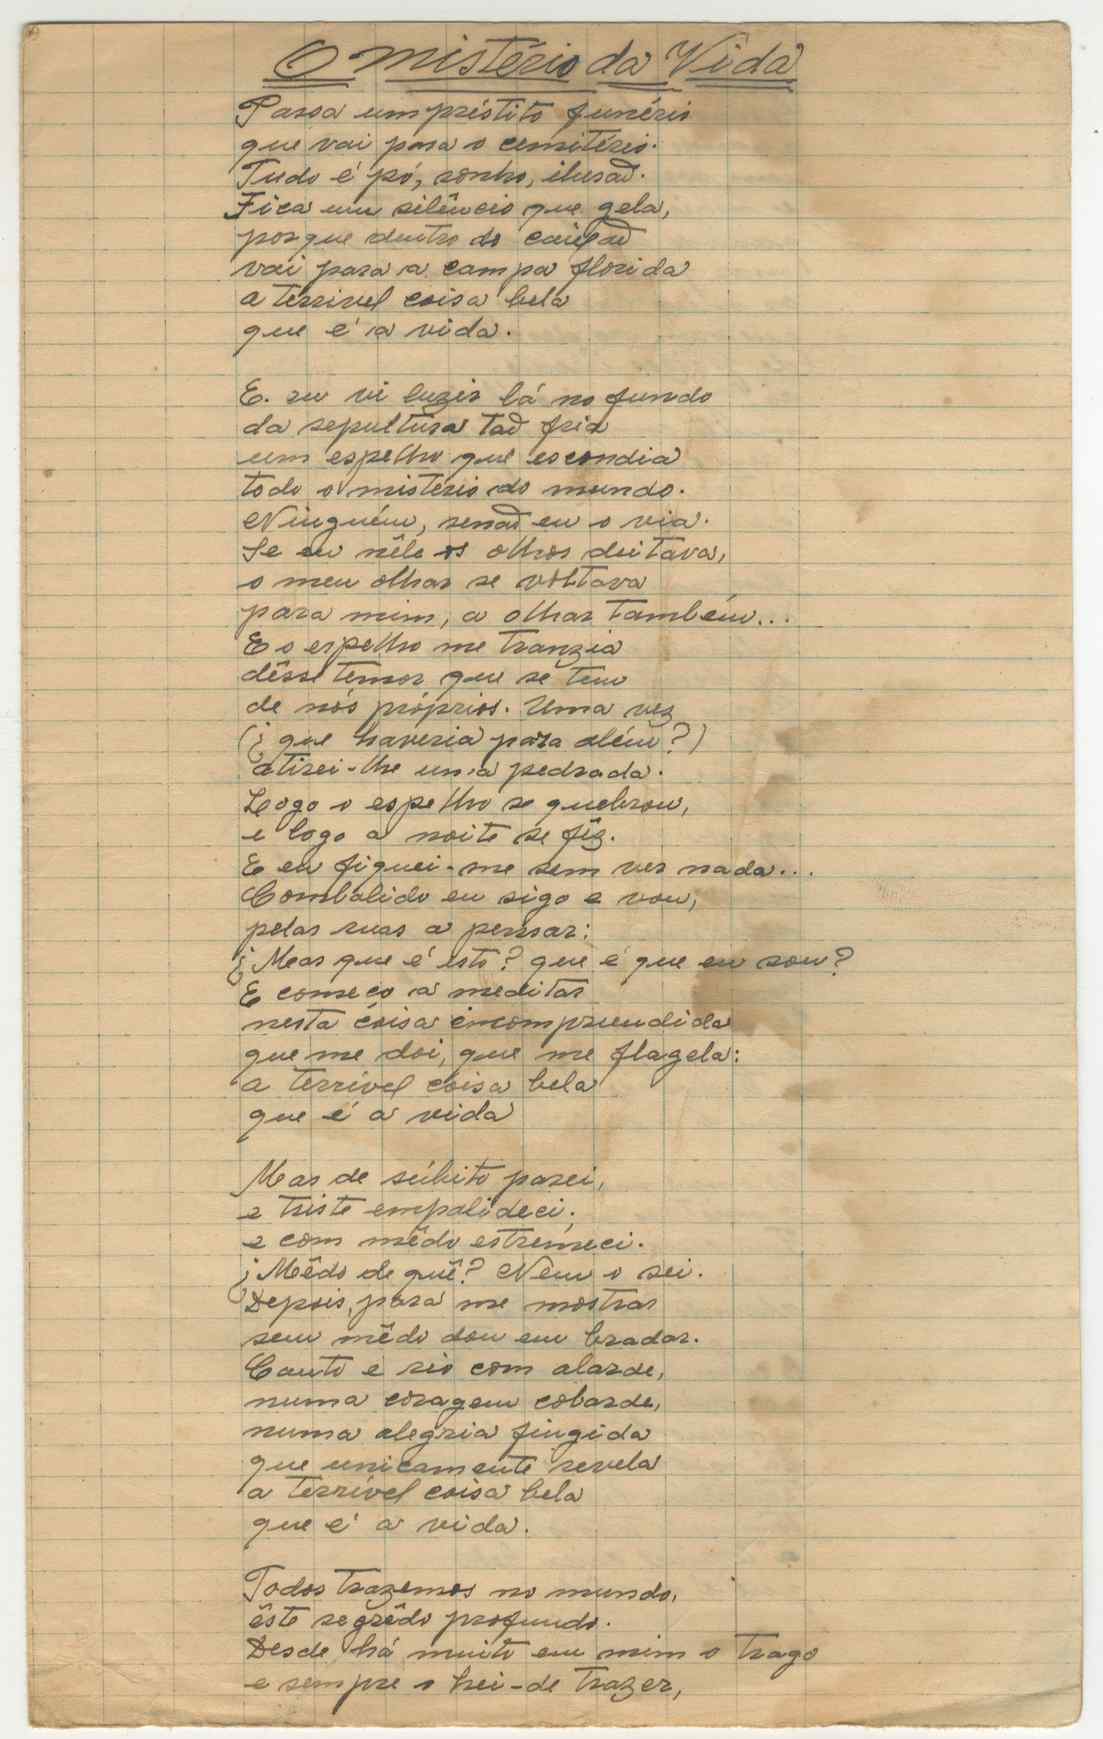 O mistério da Vida
Passa um préstito funério
que vai para o cemitério.
Tudo é pó, sonho, ilusão.
Fica um silêncio que gela,
porque dentro do caixão
vai para a campa florida
a terrivel coisa bela
que é a vida.
E eu vi luzir lá no fundo
da sepultura tão fria
um espelho que escondia
todo o mistério do mundo.
Ninguém, senão eu o via.
Se eu nêle os olhos deitava,
o meu olhar se voltava
para mim, a olhar também...
E o espelho me tranzia
dêsse temor que se tem
de nós próprios. Uma vez
(¿ que haveria para além?)
atirei-lhe uma pedrada.
Logo o espelho se quebrou,
e logo a noite se fêz.
E eu fiquei-me sem ver nada...
Combalido eu sigo e vou,
pelas ruas a pensar:
¿ Mas que é isto? que é que eu sou?
E começo a meditar
nesta coisa incompreendida
que me doi, que me flagela:
a terrivel coisa bela
que é a vida
Mas de súbito parei,
e triste empalideci;
e com mêdo estremeci.
¿ Mêdo de quê? Nem o sei.
Depois, para me mostrar
sem mêdo dou em bradar.
Canto e rio com alarde,
numa coragem cobarde,
numa alegria fingida
que unicamente revela
a terrivel coisa bela
que é a vida.
Todos trazemos no mundo,
êste segrêdo profundo.
Desde há muito em mim o trago
e sempre o hei-de trazer,